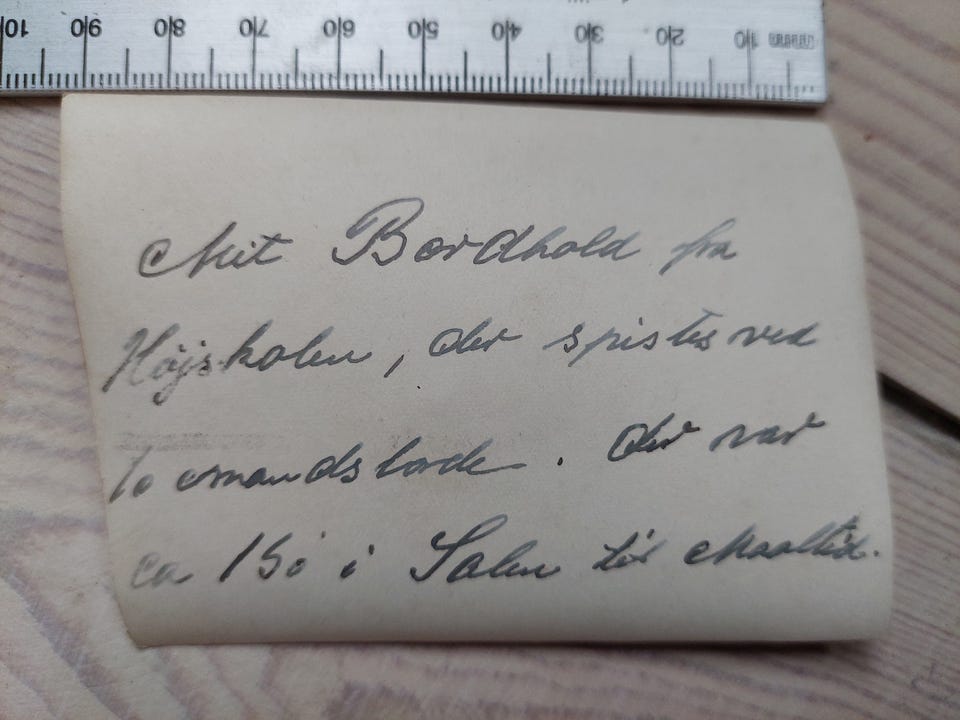 10 90 80 70 60 50 40 30 20 10
Mit Bordhold fra
Højskolen, der spistes ved
10 mandsborde. Der var
ca 150 i Salen til Maaltid.